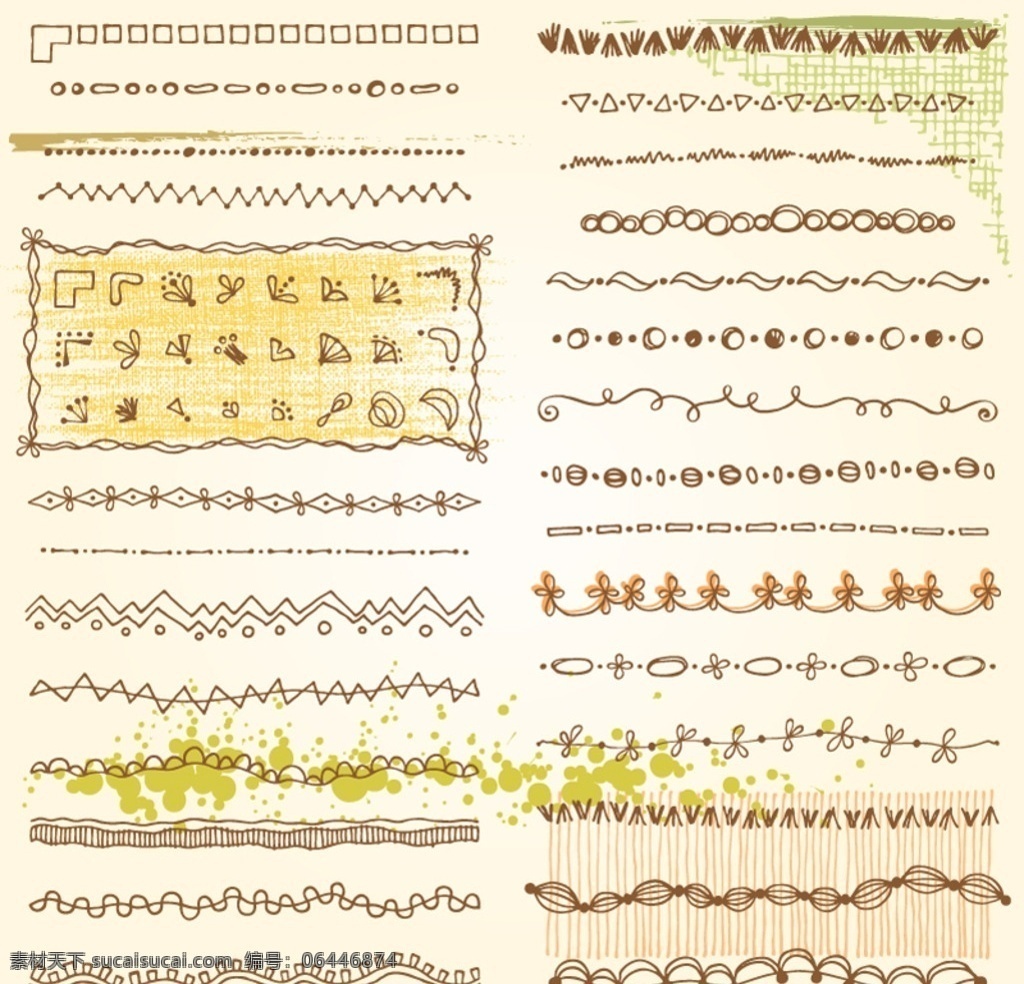 素材天下 sucaisucai.com 编号：06446874